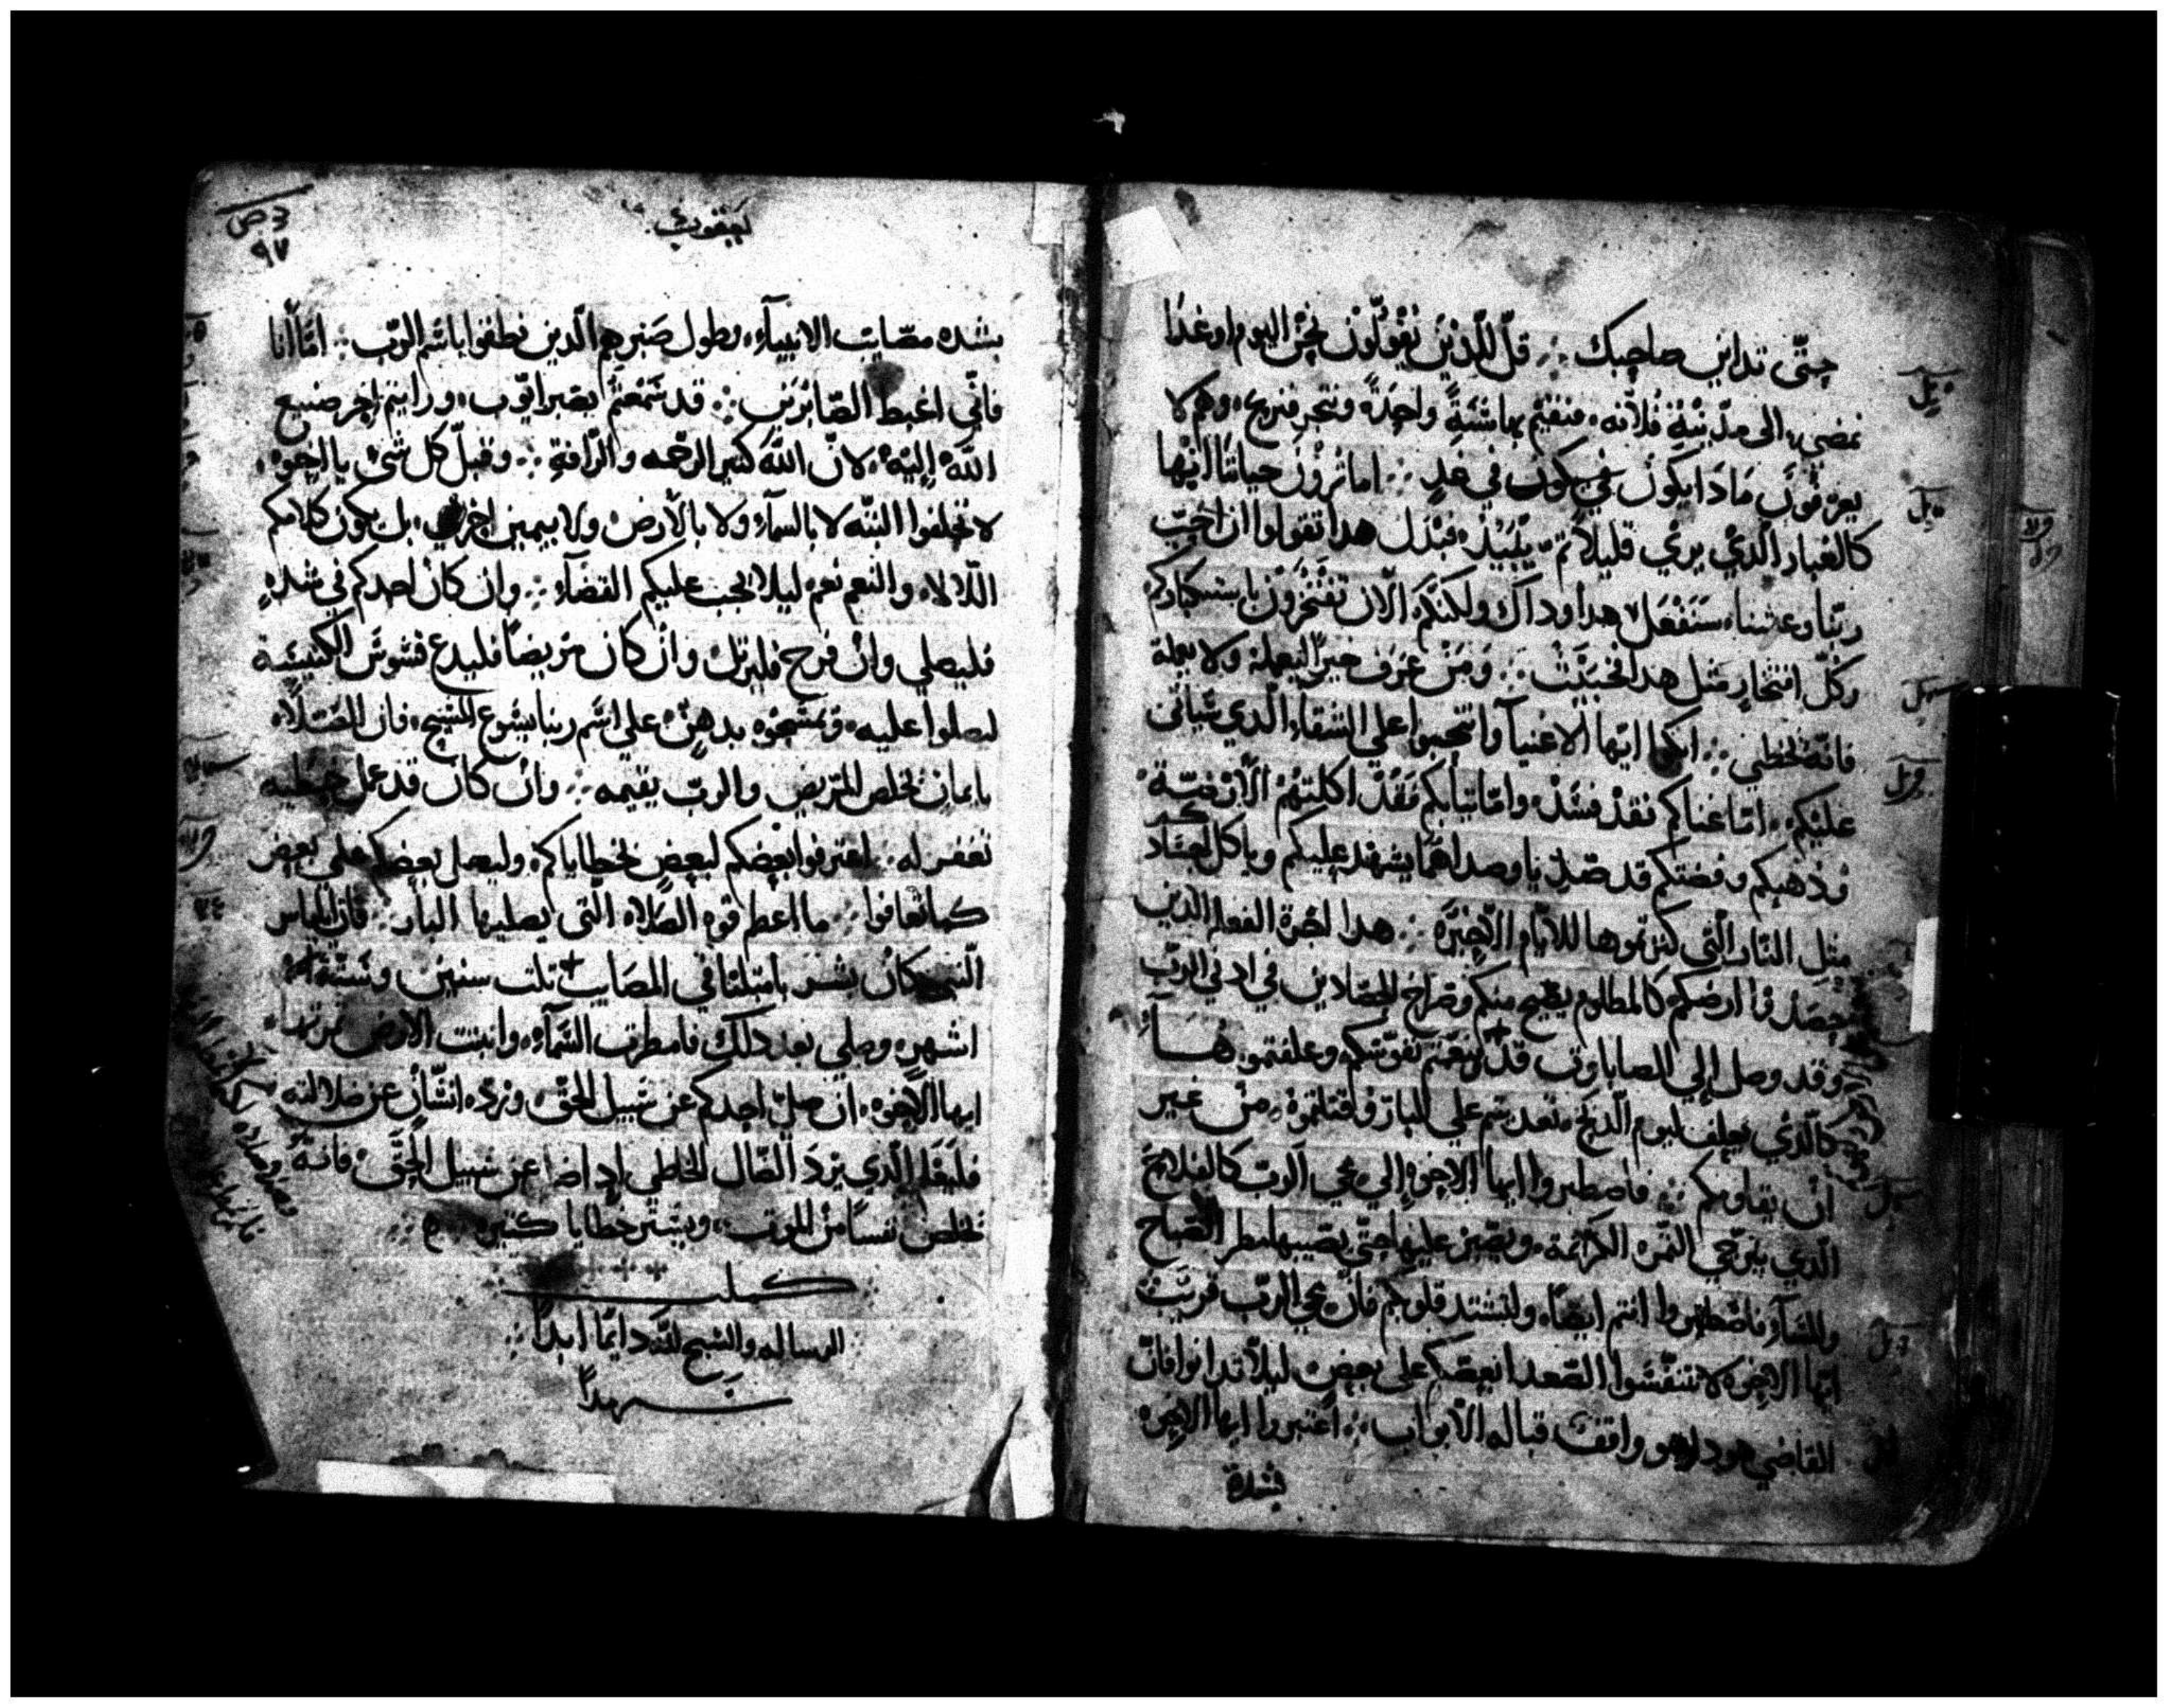 حتّى تداين صاحبك ∴ قل للّذين يقولون نحن اليوم اوغدًا
نمضي الى مدينة فلانه، فنقيم بها سنةً واحدةً ونتجر فنربح، وهم لا
يعرفون مادا يكون في غدٍ ∴ اما ترون حياتنا انها
كالغبار الّدي يري قليلاً تم يبيد، فبدل هدا تقولوا ان احبّ
ربّنا وعشنا، سنفعل هدا وداك ولكنكم الان تفتخرون باستكباركم
وكلّ افتخارٍ مثل هدا خبيث ∴ ومن عرف خيرًا ليعمله ولا يعمله
فانّه يخطي ∴ ابكوا ايّها الاغنيا وانتحبوا علي الشقاء الّدي سياتى
عليكم، امّا غناكم فقد فسد، وامّا تيابكم فقد اكلتهم الارضة
ودهبكم وفضتكم قد صديا وصداهما يشهد عليكم وياكل اجسادكم
مثل النار الّتى كنزتموها للايام الاخيرة ∴ هدا اجرة الفعله الدين
حصدوا ارضكم كالمظلوم يصيح منكم وصراخ الحصادين في ادني الرب
وقد وصل إلي الصاباوت قد تنعمتم نفوسكم وعلفتموها
كالّدي يعلف ليوم الّدبح، تعديتم علي البارّ وقتلتموه، من غير
ان يقاومكم ∴ فاصطبروا ايها الاخوة إلي مجي الرب كالفلاح
الّدي يترجي الثمره الكريمة، ويصبر عليها حتّى يصيبها مطر الصباح
والمسآء فاصطبروا انتم ايضًا، ولتشتد قلوبكم فانّ مجي الربّ قريب
ايّها الاخوه لا تتنفّسوا الصّعدا بعضكم على بعض، ليلاّ تدانوا فانّ
القاضي هودا هو واقف قبالة الابواب ∴ اعتبروا ايها الاخوه
بشدة
يعقوب
بشده مصّايب الانبيآء، وطول صبرهم الّدين نطقوا باسم الرّب ∴ امّا انا
فانّي اغبط الصّابرين ∴ قد سمعتم بصبر ايّوب، ورايتم اخر صنيع
اللّه إليه، لانّ اللّه كتير الرحمه والرّافة ∴ وقبل كل شئ يا اخوه
لا تحلفوا البتّه لا بالسمآء ولا بالارض، ولا بيمين اخري، بل يكون كلامكم
اللّا لا، والنعم نعم ليلا يجب عليكم القضآء ∴ وان كان احدكم في شده
فليصلي وان فرح فليرتل وان كان مريضًا فليدع قسوس الكنيسة
ليصلوا عليه، وتمسّحوه بدهن، علي اسم ربنا يسوع المسيح، فان الصّلاه
بايمان تخلص المريض والربّ يقيمه ∴ وان كان قد عمل خطيه
تغفر له ∴ اعترفوا بعضكم لبعض بخطاياكم، وليصل بعضكم على بعض
كما تعافوا ∴ ما اعظم قوه الصّلاه الّتى يصليها البار ∴ فان ايلياس
النبي كان بشر بامتلنا في المصايب تلت سنين وستّة
اشهر، وصلي بعد دلك فامطرت السّمآء، وانبتت الارض ثمرتها
ايها الاخوه، ان ضلّ احدكم عن سبيل الحقّ، وردّه انسّان عن ضلالته
فليعلم الّدي يردّ الضال الخاطي اد اضا عن سبيل الحقّ، فانّه
تخلص نفسًا من الموت، ويستر خطايا كتيره ∴
كملت
الرساله والسّبح للّه دايمًا ابدًا
سرمدًا